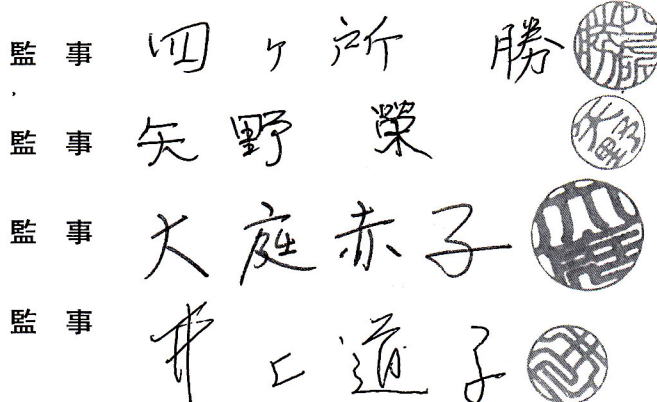 監事 四ヶ所 勝
監事 矢野 榮
監事 大庭赤子
監事 井上道子